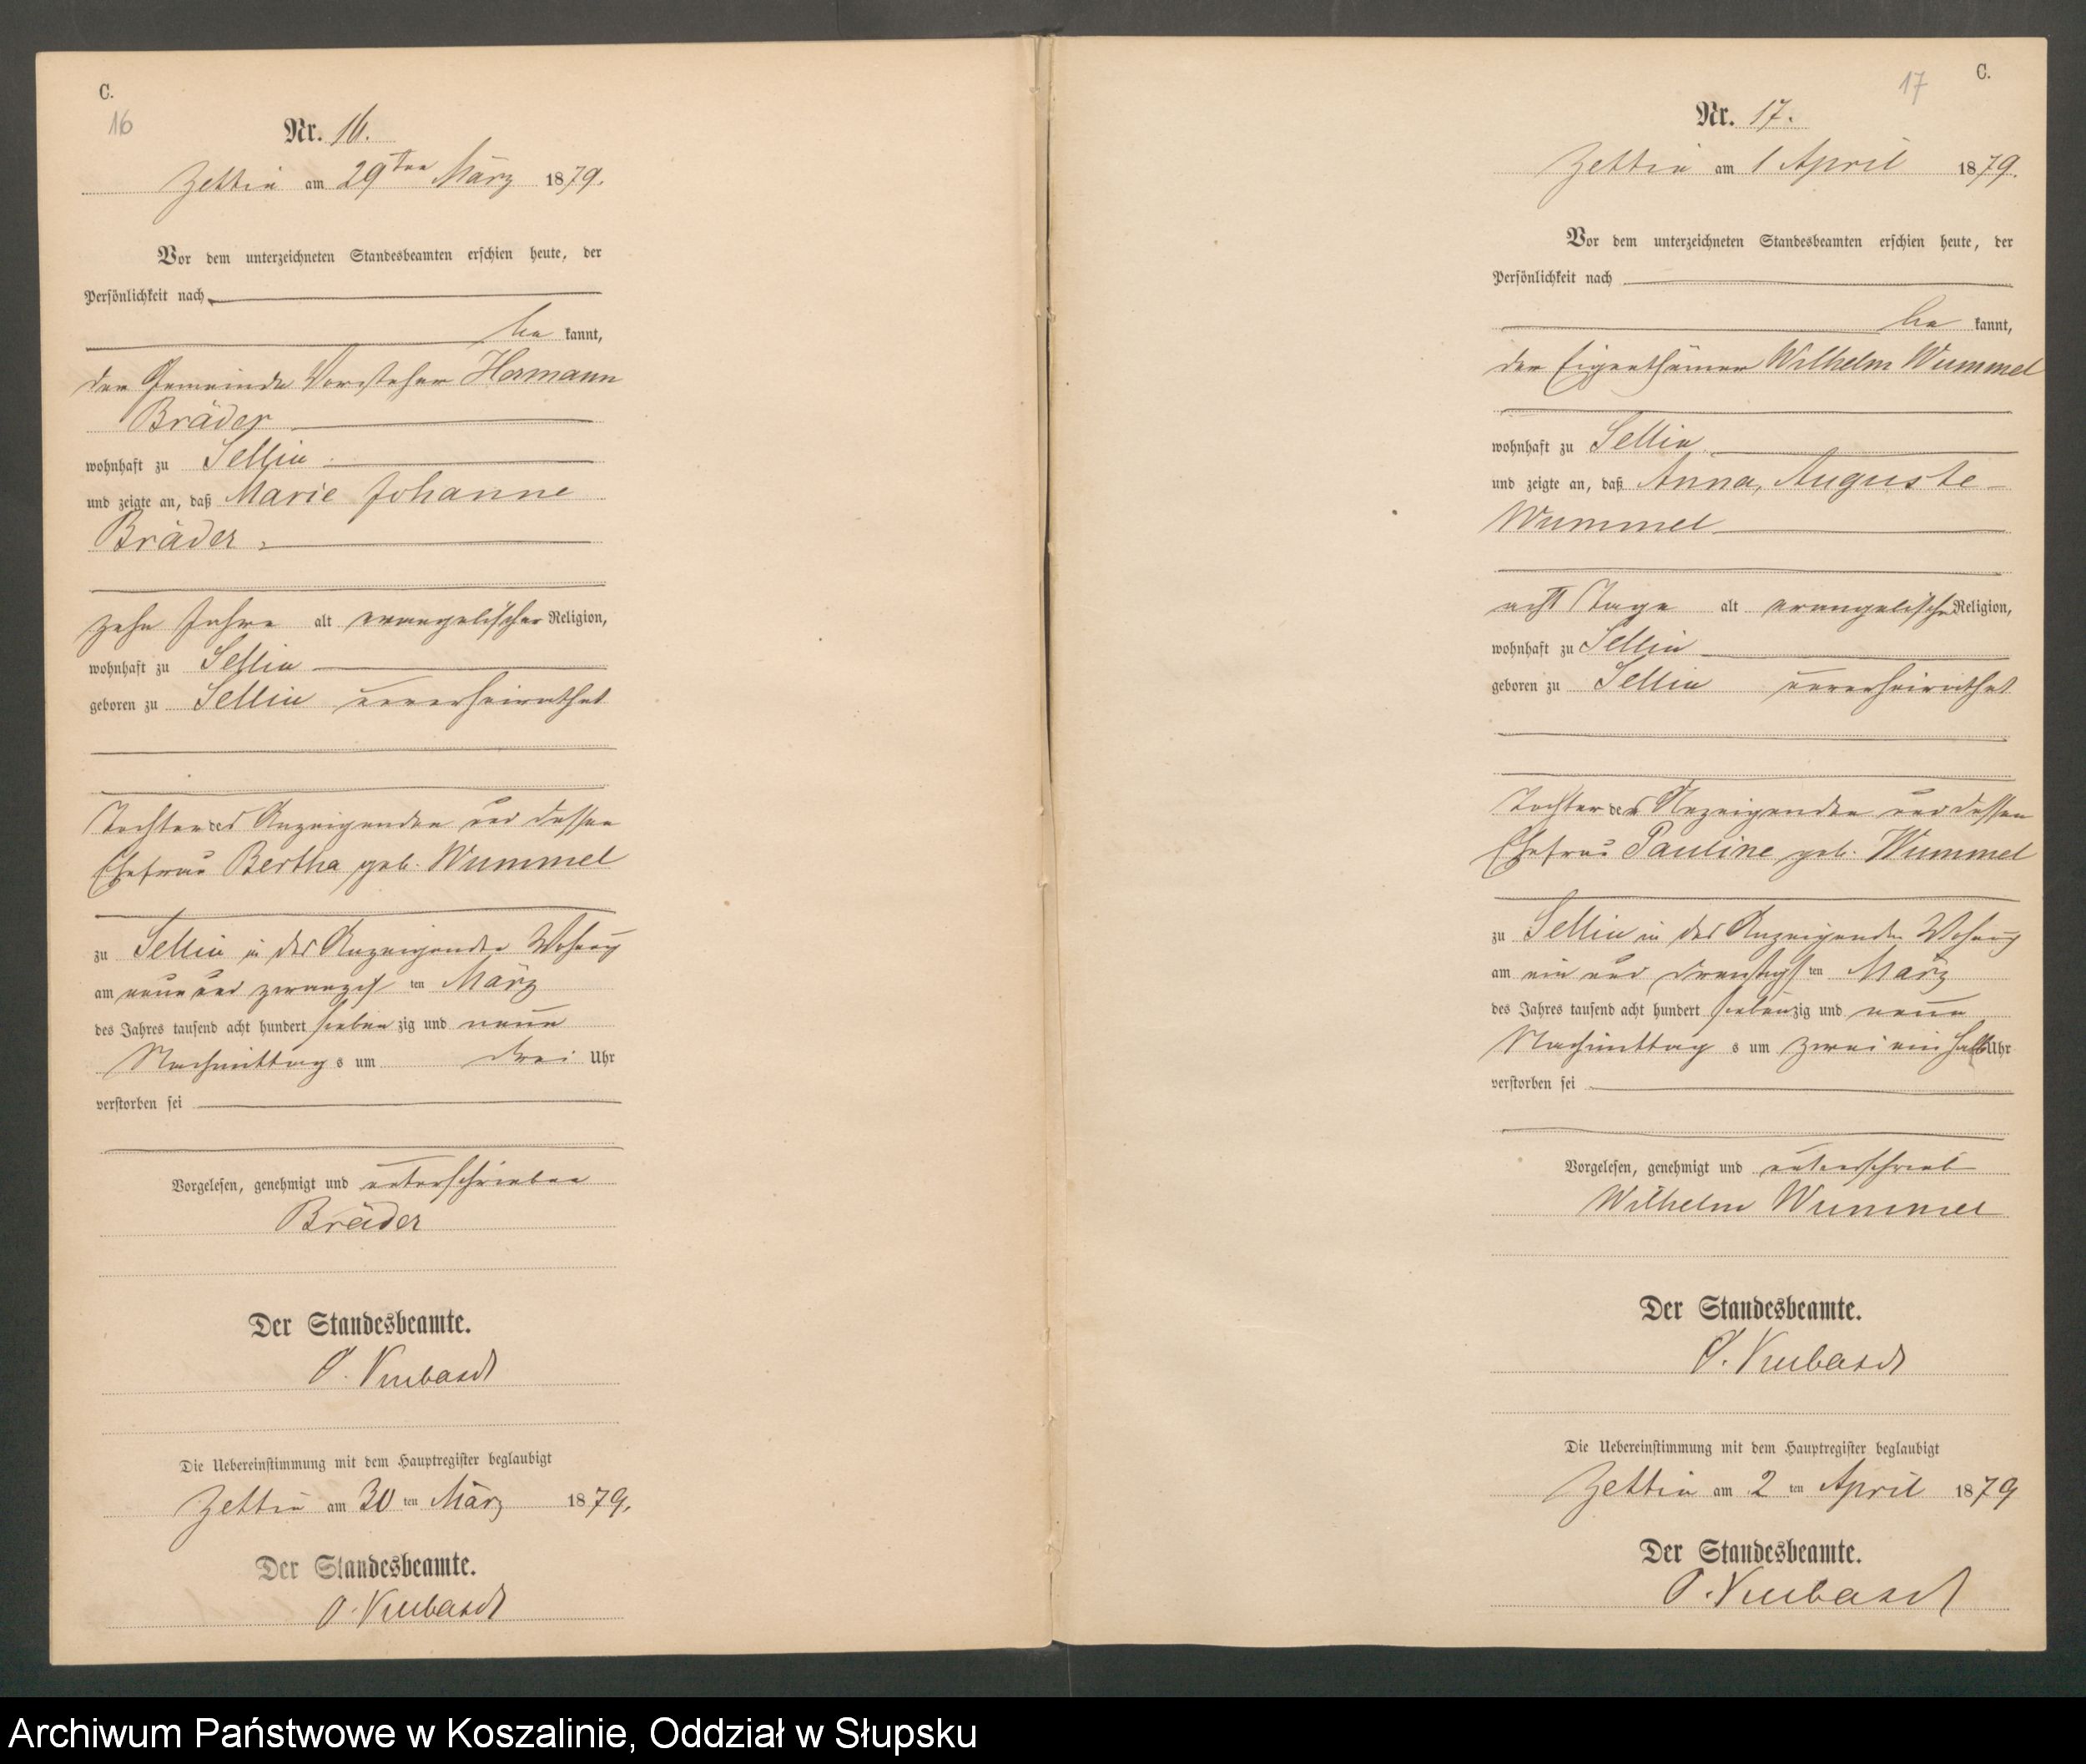 C.
16
Nr. 16.
Zettin am 29ten März 1879.
Vor dem unterzeichneten Standesbeamten erschien heute, der
Persönlichkeit nach
be kannt,
der Gemeinde Vorsteher Hermann
Bräder
wohnhaft zu Sellin
und zeigte an, daß Marie Johanne
Bräder
zehn Jahre alt evangelischer Religion,
wohnhaft zu Sellin
geboren zu Sellin unverheirathet
Tochter des Anzeigenden und dessen
Ehefrau Bertha geb. Wummel
zu Sellin in des Anzeigenden Wohnung
am neun und zwanzigst ten März
des Jahres tausend acht hundert sieben zig und neun
Nachmittag s um drei Uhr
verstorben sei
Vorgelesen, genehmigt und unterschrieben
Bräder
Der Standesbeamte.
Die Uebereinstimmung mit dem Hauptregister beglaubigt
Zettin am 30 ten März 1879.
Der Standesbeamte.
17
C.
Nr. 17.
Zettin am 1 April 1879.
Vor dem unterzeichneten Standesbeamten erschien heute, der
Persönlichkeit nach
be kannt,
der Eigenthümer Wilhelm Wummel
wohnhaft zu Sellin
und zeigte an, daß Anna, Auguste
Wummel
acht Tage alt evangelischer Religion,
wohnhaft zu Sellin
geboren zu Sellin unverheirathet
Tochter des Anzeigenden und dessen
Ehefrau Pauline geb. Wummel
zu Sellin in des Anzeigenden Wohnung
am ein und dreißigst ten März
des Jahres tausend acht hundert sieben zig und neun
Nachmittag s um zwei ein halb Uhr
verstorben sei
Vorgelesen, genehmigt und unterschrieb
Wilhelm Wummel
Der Standesbeamte.
Die Uebereinstimmung mit dem Hauptregister beglaubigt
Zettin am 2 ten April 1879
Der Standesbeamte.
Archiwum Państwowe w Koszalinie, Oddział w Słupsku